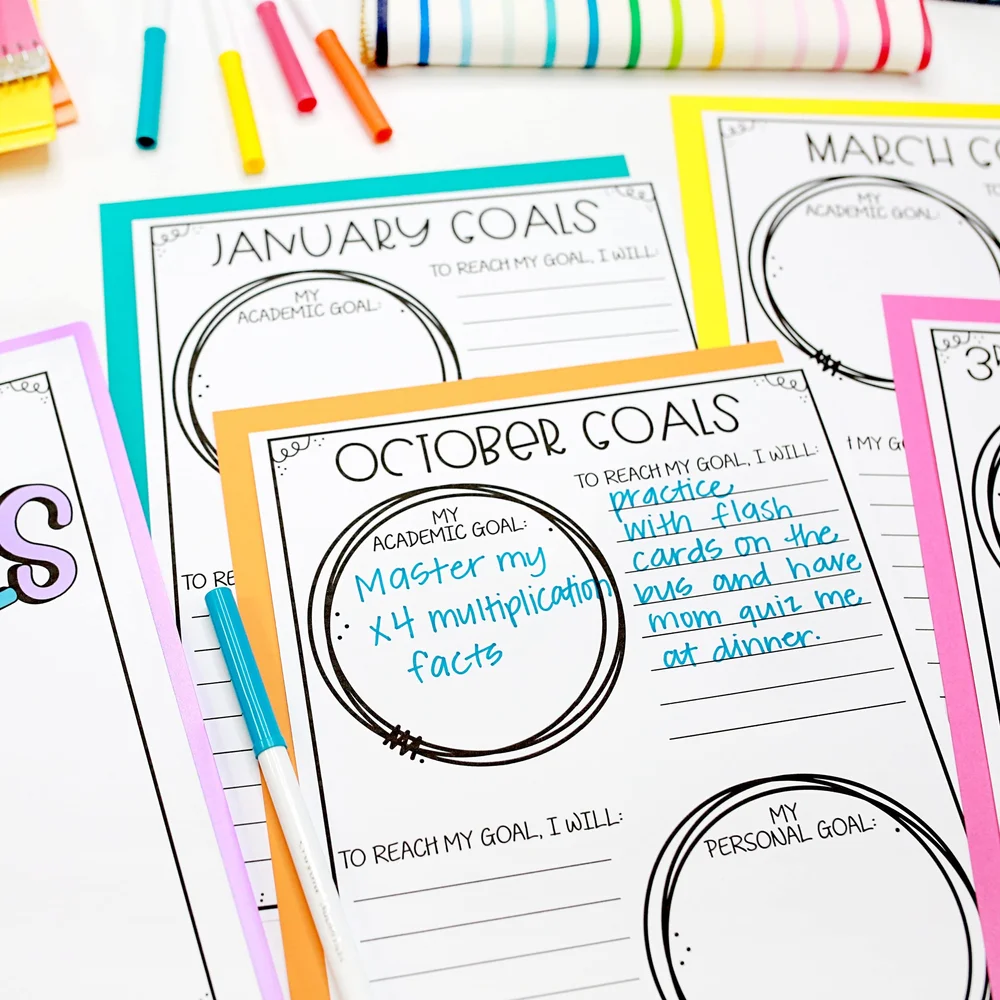 MARCH GO
MY
ACADEMIC GOAL:
JANUARY GOALS
TO REACH MY GOAL, I WILL:
MY
ACADEMIC GOAL:
TO RE
OCTOBER GOALS
MY
ACADEMIC GOAL:
Master my
x4 multiplication
facts
TO REACH MY GOAL, I WILL:
practice
with flash
cards on the
bus and have
mom quiz me
at dinner.
TO REACH MY GOAL, I WILL:
MY
PERSONAL GOAL:
MY GO
S